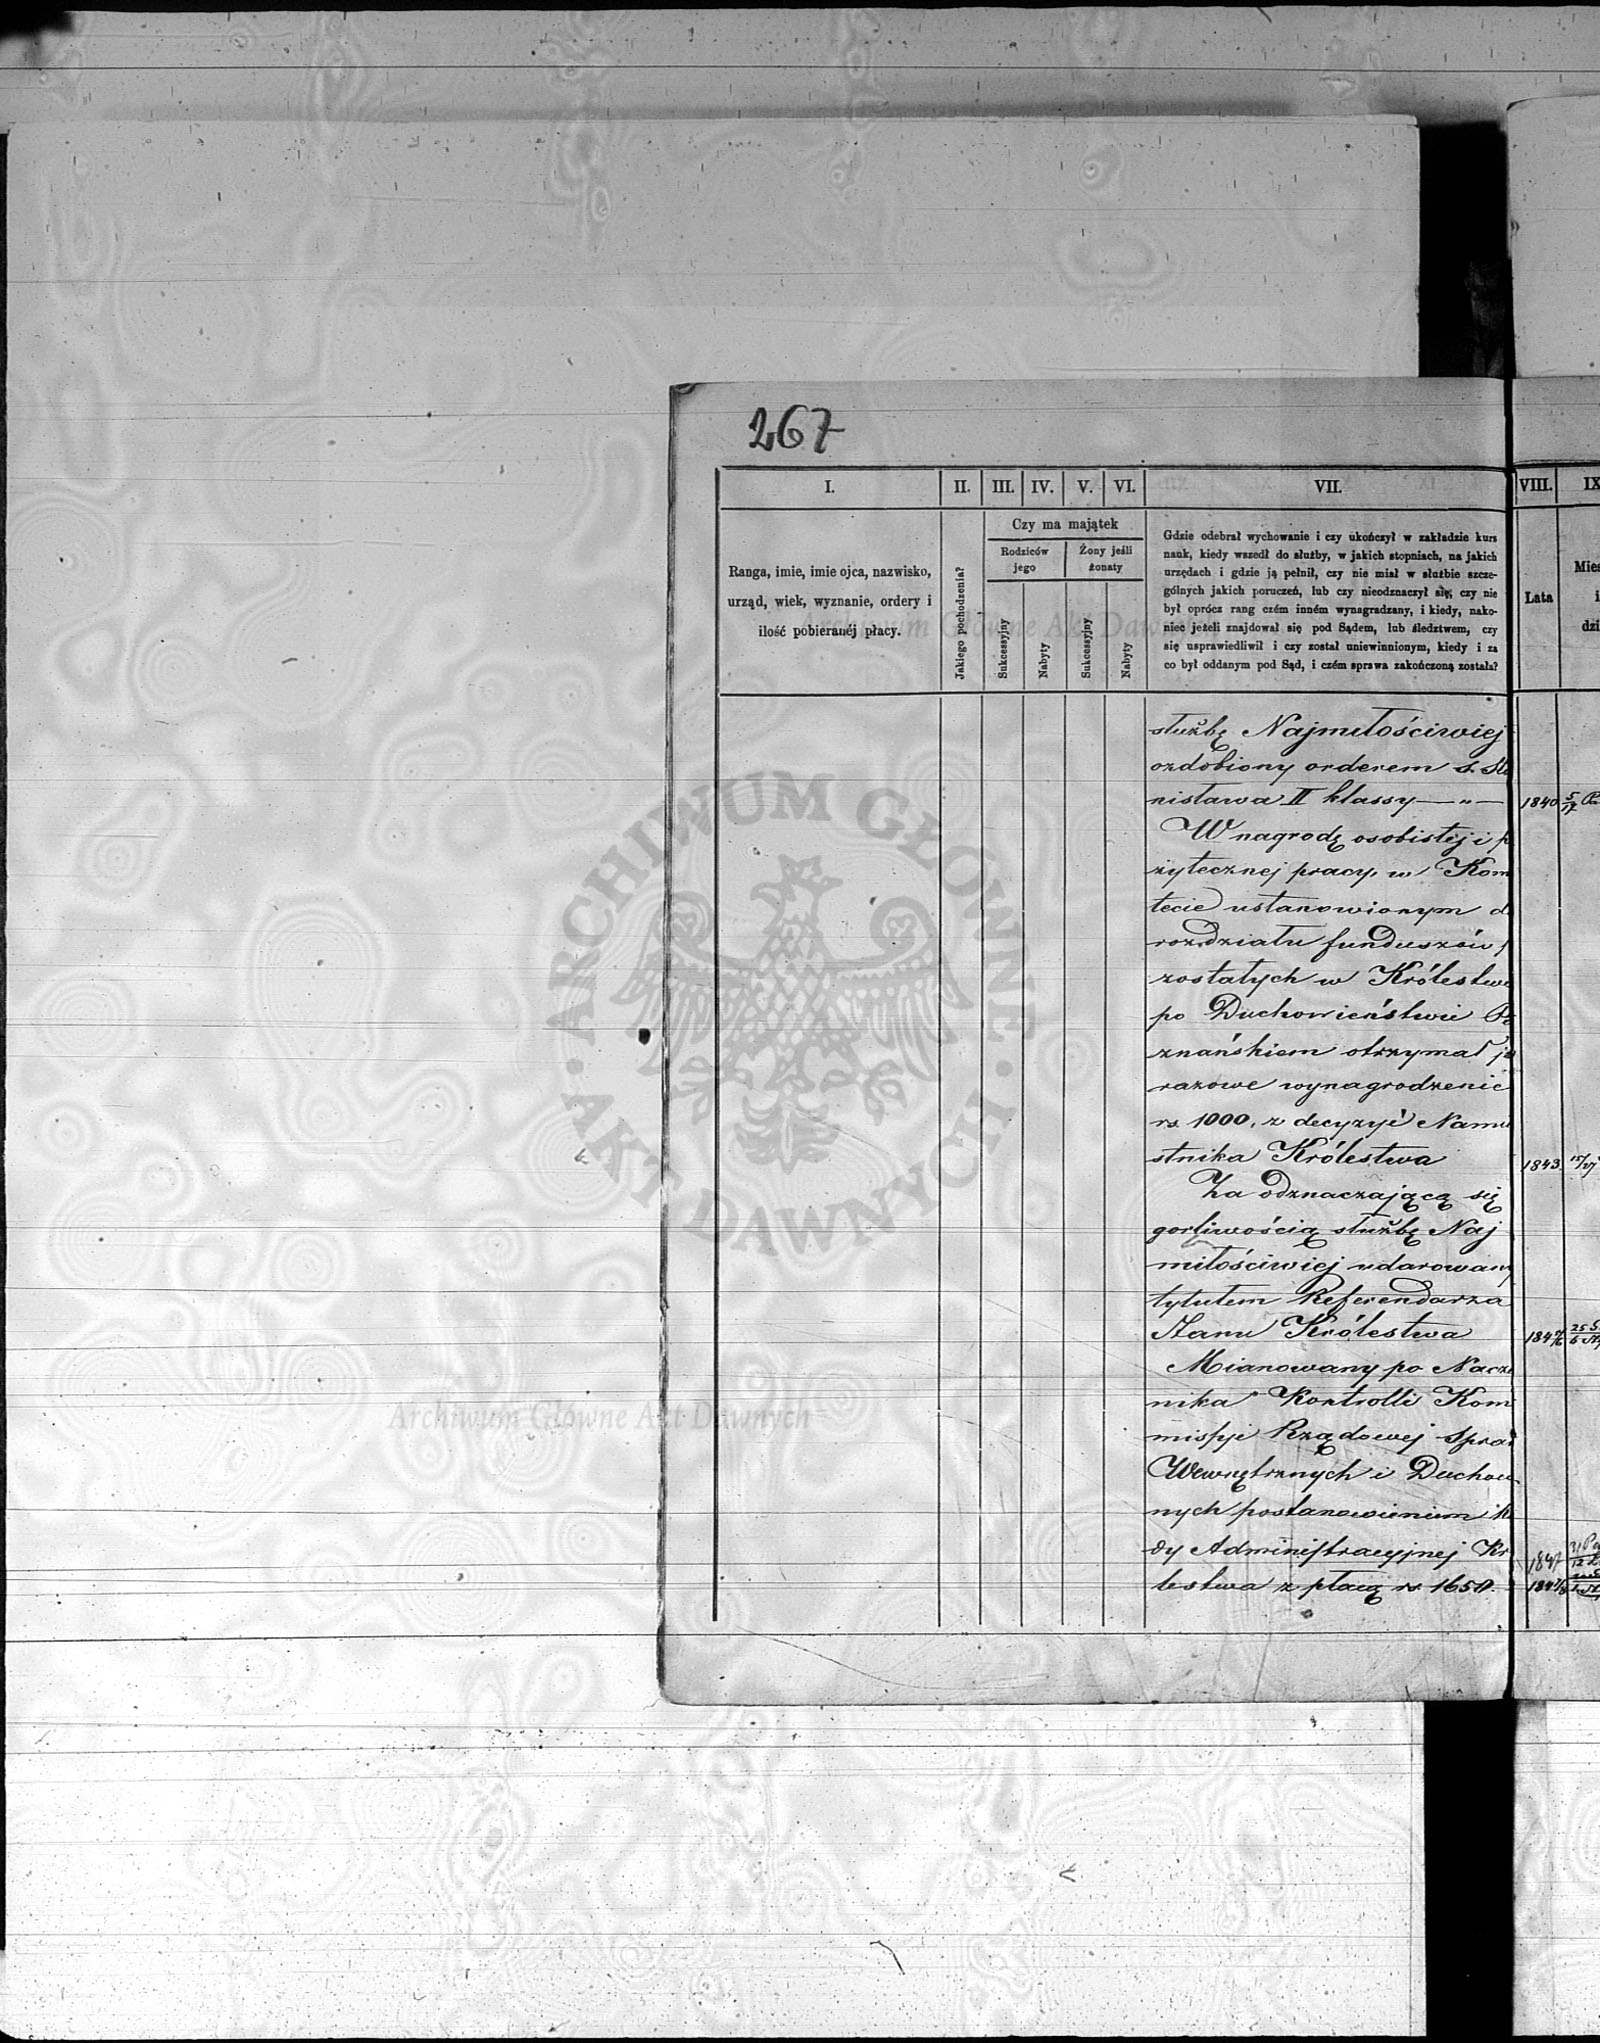 267
I. II. III. IV. V. VI. VII. VIII. IX
Ranga, imie, imie ojca, nazwisko,
urząd, wiek, wyznanie, ordery i
ilość pobieranéj płacy.
Jakiego pochodzenia?
Czy ma majątek
Rodziców
jego
Żony jeśli
żonaty
Sukcessyjny
Nabyty
Sukcessyjny
Nabyty
Gdzie odebrał wychowanie i czy ukończył w zakładzie kurs
nauk, kiedy wszedł do służby, w jakich stopniach, na jakich
urzędach i gdzie ją pełnił, czy nie miał w służbie szcze-
gólnych jakich poruczeń, lub czy nieodznaczył się, czy nie
był oprócz rang czém inném wynagradzany, i kiedy, nako-
niec jeżeli znajdował się pod Sądem, lub śledztwem, czy
się usprawiedliwił i czy został uniewinnionym, kiedy i za
co był oddanym pod Sąd, i czém sprawa zakończoną została?
Lata
Mies
i
dzi
służbę Najmiłościwiej
ozdobiony orderem S. Sta
nisława II klassy — „ — 1840 5/17
W nagrodę osobistej i p
żytecznej pracy, w Kom
tecie ustanowionym d
rozdziału funduszów
zostałych w Królestwi
po Duchowieństwie Po
znańskiem otrzymał je
razowe wynagrodzenie
rs. 1000. z decyzyi Namie
stnika Królestwa 1843. 15/27
Za odznaczającą się
gorliwością służbę Naj
miłościwiej udarowany
tytułem Referendarza
Stanu Królestwa
Mianowany po Nacze
nika Kontrolli Kom
missyi Rządowej Spraw
Wewnętrznych i Duchow
nych postanowieniem
dy Administracyjnej Kr 1847
lestwa z płacą rs. 1650. 1847/8
ARCHIWUM GŁÓWNE
AKT DAWNYCH
Archiwum Główne Akt Dawnych
Archiwum Główne Akt Dawnych